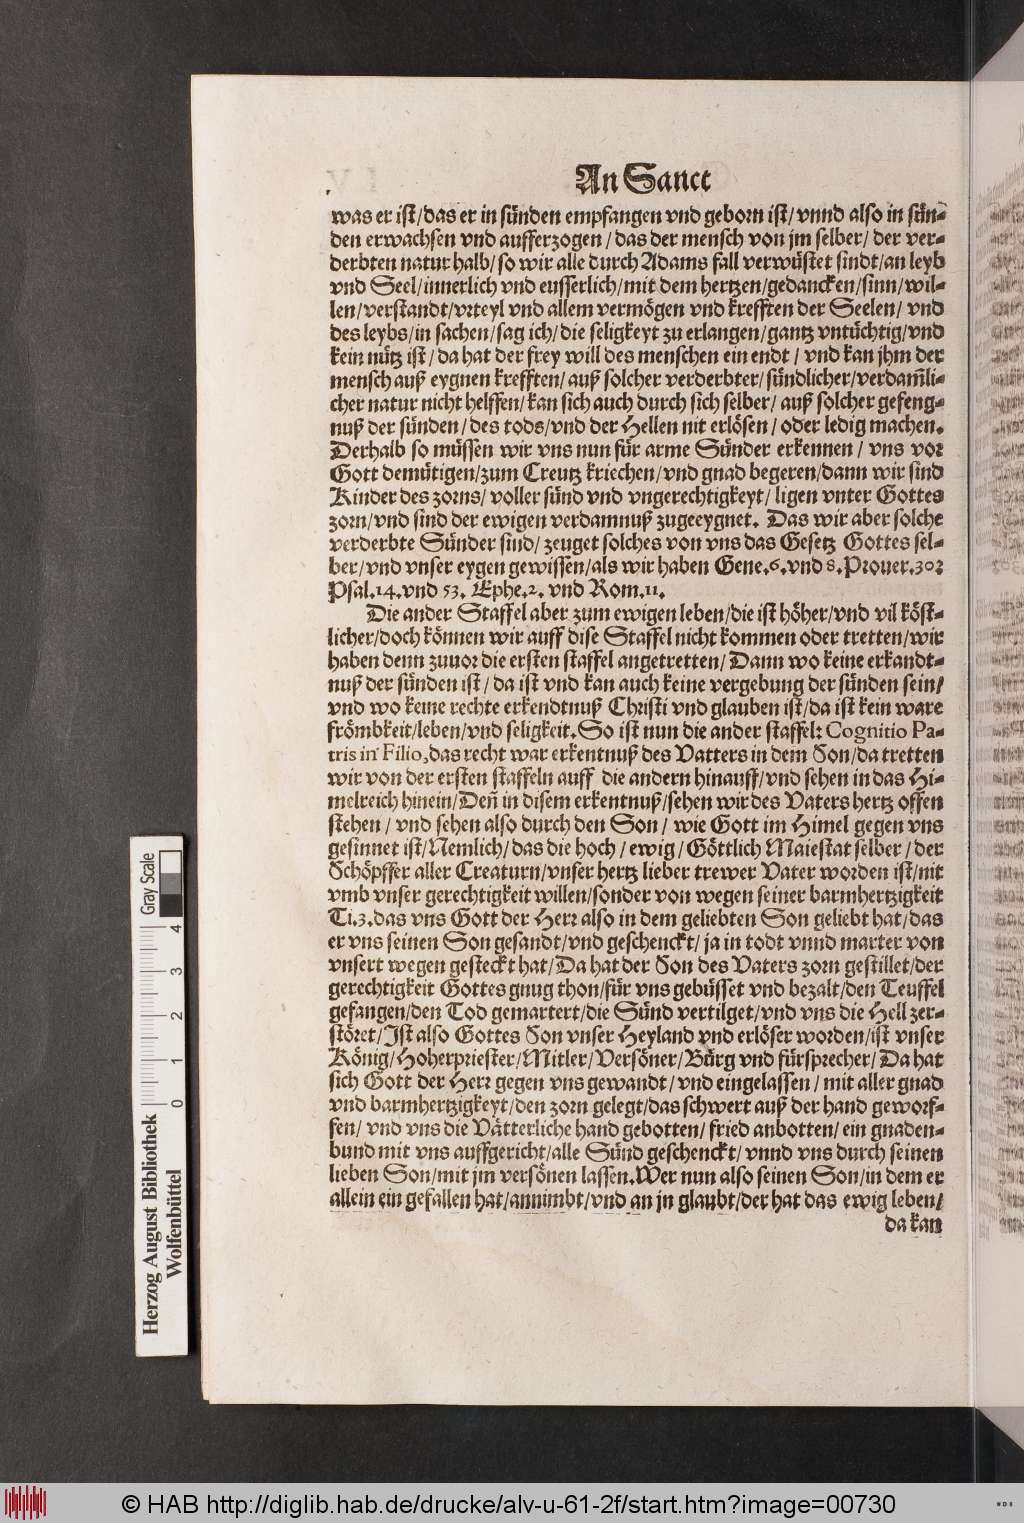 An Sanct
was er ist/das er in sünden empfangen vnd geborn ist/vnnd also in sün-
den erwachsen vnd aufferzogen/das der mensch von jm selber/der ver-
derbten natur halb/so wir alle durch Adams fall verwüstet sindt/an leyb
vnd Seel/innerlich vnd eusserlich/mit dem hertzen/gedancken/sinn/wil-
len/verstandt/vrteyl vnd allem vermögen vnd krefften der Seelen/vnd
des leybs/in sachen/sag ich/die seligkeyt zu erlangen/gantz vntüchtig/vnd
kein nütz ist/da hat der frey will des menschen ein endt/vnd kan jhm der
mensch auß eygnen krefften/auß solcher verderbter/sündlicher/verdam̃li-
cher natur nicht helffen/kan sich auch durch sich selber/auß solcher gefeng-
nuß der sünden/des tods/vnd der Hellen nit erlösen/oder ledig machen.
Derhalb so müssen wir vns nun für arme Sünder erkennen/vns vor
Gott demütigen/zum Creutz kriechen/vnd gnad begeren/dann wir sind
Kinder des zorns/voller sünd vnd vngerechtigkeyt/ligen vnter Gottes
zorn/vnd sind der ewigen verdamnuß zugeeygnet. Das wir aber solche
verderbte Sünder sind/zeuget solches von vns das Gesetz Gottes sel-
ber/vnd vnser eygen gewissen/als wir haben Gene.6.vnd 8.Prouer.30:
Psal.14.vnd 53. Ephe.2. vnd Rom.11.
Die ander Staffel aber zum ewigen leben/die ist höher/vnd vil köst-
licher/doch können wir auff dise Staffel nicht kommen oder tretten/wir
haben denn zuuor die ersten staffel angetretten/Dann wo keine erkandt-
nuß der sünden ist/da ist vnd kan auch keine vergebung der sünden sein/
vnd wo keine rechte erkendtnuß Christi vnd glauben ist/da ist kein ware
frömbkeit/leben/vnd seligkeit.So ist nun die ander staffel: Cognitio Pa-
tris in Filio,das recht war erkentnuß des Vatters in dem Son/da tretten
wir von der ersten staffeln auff die andern hinauff/vnd sehen in das Hi-
melreich hinein/Deñ in disem erkentnuß/sehen wir des Vaters hertz offen
stehen/vnd sehen also durch den Son/wie Gott im Himel gegen vns
gesinnet ist/Nemlich/das die hoch/ewig/Göttlich Maiestat selber/der
Schöpffer aller Creaturn/vnser hertz lieber trewer Vater worden ist/nit
vmb vnser gerechtigkeit willen/sonder von wegen seiner barmhertzigkeit
Ti.3.das vns Gott der Herr also in dem geliebten Son geliebt hat/das
er vns seinen Son gesandt/vnd geschenckt/ja in todt vnnd marter von
vnsert wegen gesteckt hat/Da hat der Son des Vaters zorn gestillet/der
gerechtigkeit Gottes gnug thon/für vns gebüsset vnd bezalt/den Teuffel
gefangen/den Tod gemartert/die Sünd vertilget/vnd vns die Hell zer-
störet/Ist also Gottes Son vnser Heyland vnd erlöser worden/ist vnser
König/Hoherpriester/Mitler/Versöner/Bürg vnd fürsprecher/Da hat
sich Gott der Herr gegen vns gewandt/vnd eingelassen/mit aller gnad
vnd barmhertzigkeyt/den zorn gelegt/das schwert auß der hand geworf-
fen/vnd vns die Vätterliche hand gebotten/fried anbotten/ein gnaden-
bund mit vns auffgericht/alle Sünd geschenckt/vnnd vns durch seinen
lieben Son/mit jm versönen lassen.Wer nun also seinen Son/in dem er
allein ein gefallen hat/annimbt/vnd an jn glaubt/der hat das ewig leben/
da kan
Gray Scale
0 1 2 3 4
Herzog August Bibliothek
Wolfenbüttel
© HAB http://diglib.hab.de/drucke/alv-u-61-2f/start.htm?image=00730